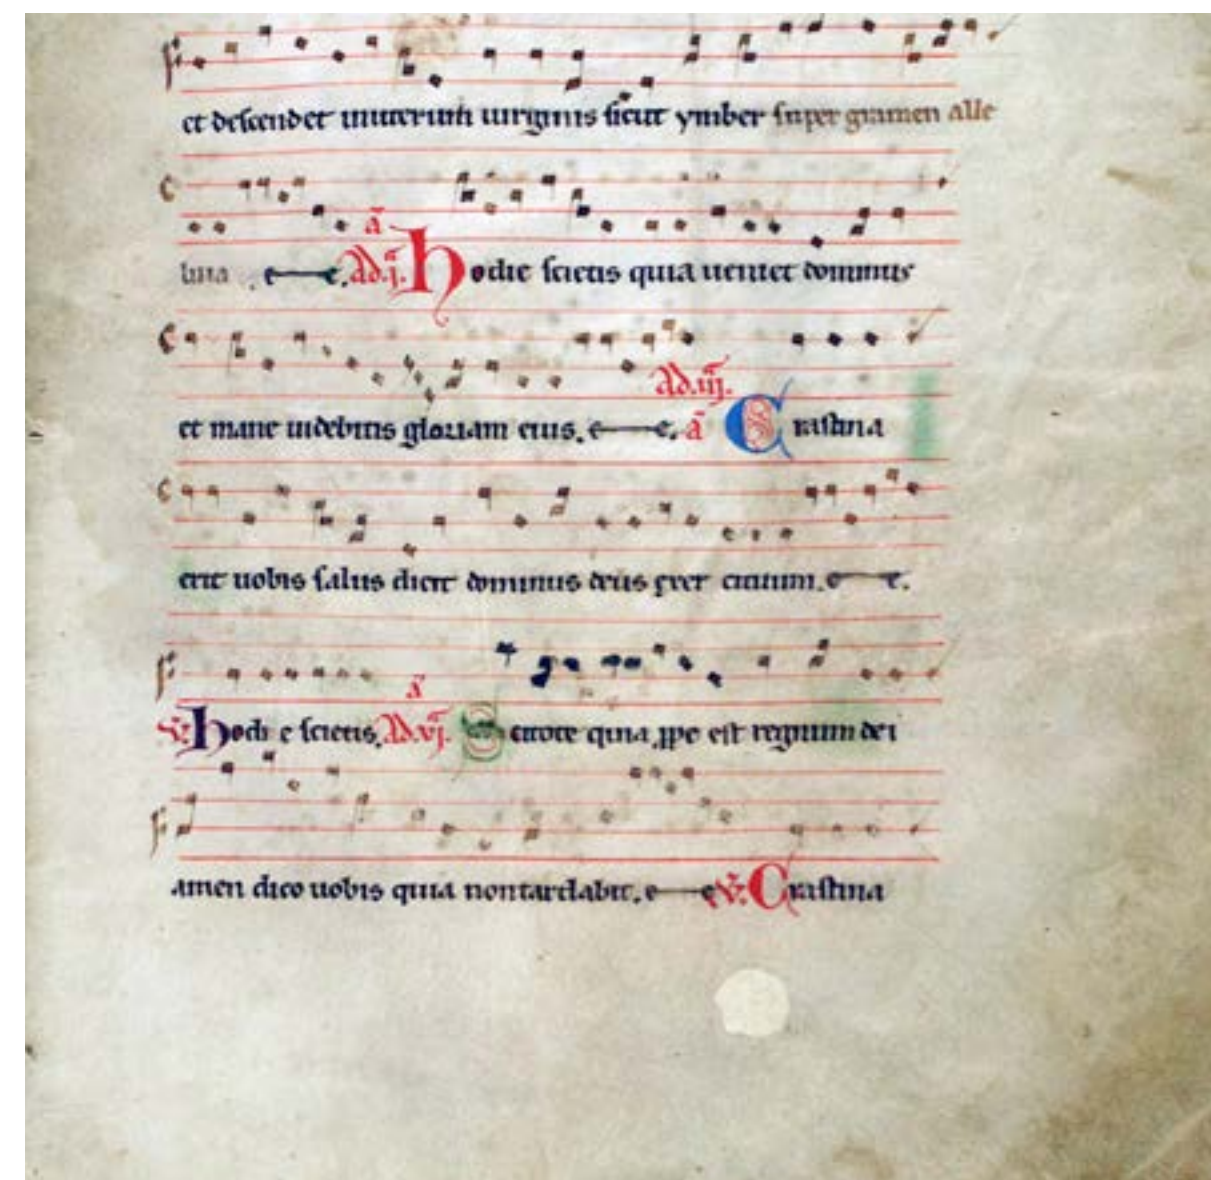 et descendet in uterum uirginis sicut ymber super gramen alle
luia . e e. ad .i. a hodie scietis quia ueniet dominus
et mane uidebitis gloriam eius. e e. ad .iij. a Crastina
erit uobis salus dicit dominus deus exercituum. e e.
V. hodi e scietis. ad .vj. a Scitote quia ꝓpe est regnum dei
amen dico uobis quia non tardabit. e e V. Crastina